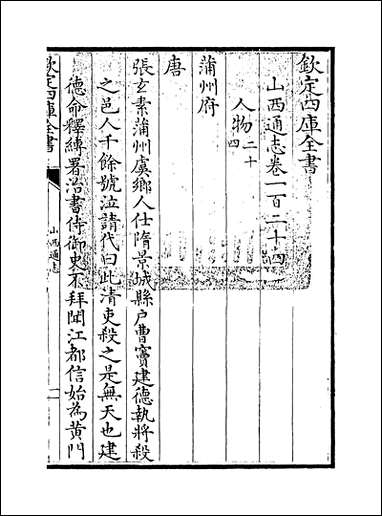 欽定四庫全書
山西通志卷一百二十四
人物二十四
蒲州府
唐
張玄素蒲州虞鄉人仕隋景城縣户曹竇建德執將殺
之邑人千餘號泣請代曰此清吏殺之是無天也建
德命釋縛署治書侍御史不拜聞江都信始為黄門
欽定四庫全書
山西通志
一